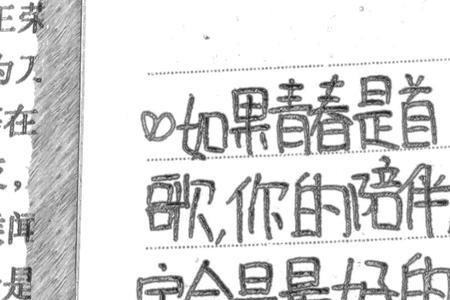 王荣
为
在
，
闻
是
♡如果青春是首
歌，你的陪伴
定会是最好的